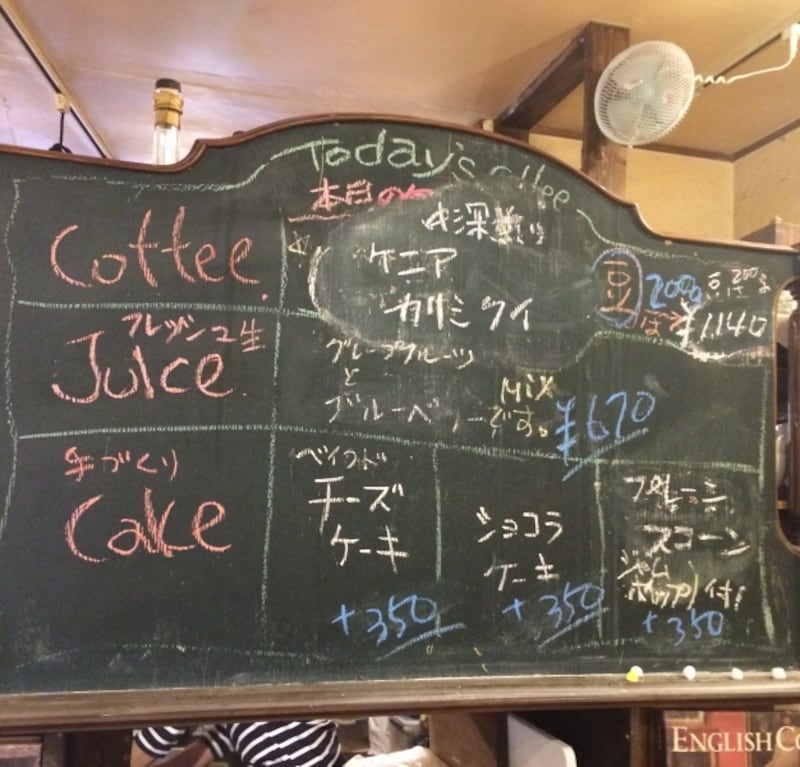 Today's Coffee
本日の
Coffee
中深煎り
ケニア
カリミクイ
豆
200g
は
豆は200g
¥1,140
フレッシュ生
Juice
グレープフルーツ
と
ブルーベリー
Mix
です。
¥670
手づくり
Cake
ベイクド
チーズ
ケーキ
+350
ショコラ
ケーキ
+350
プレーン
スコーン
ジャム
ホイップ付!
+350
ENGLISH CO